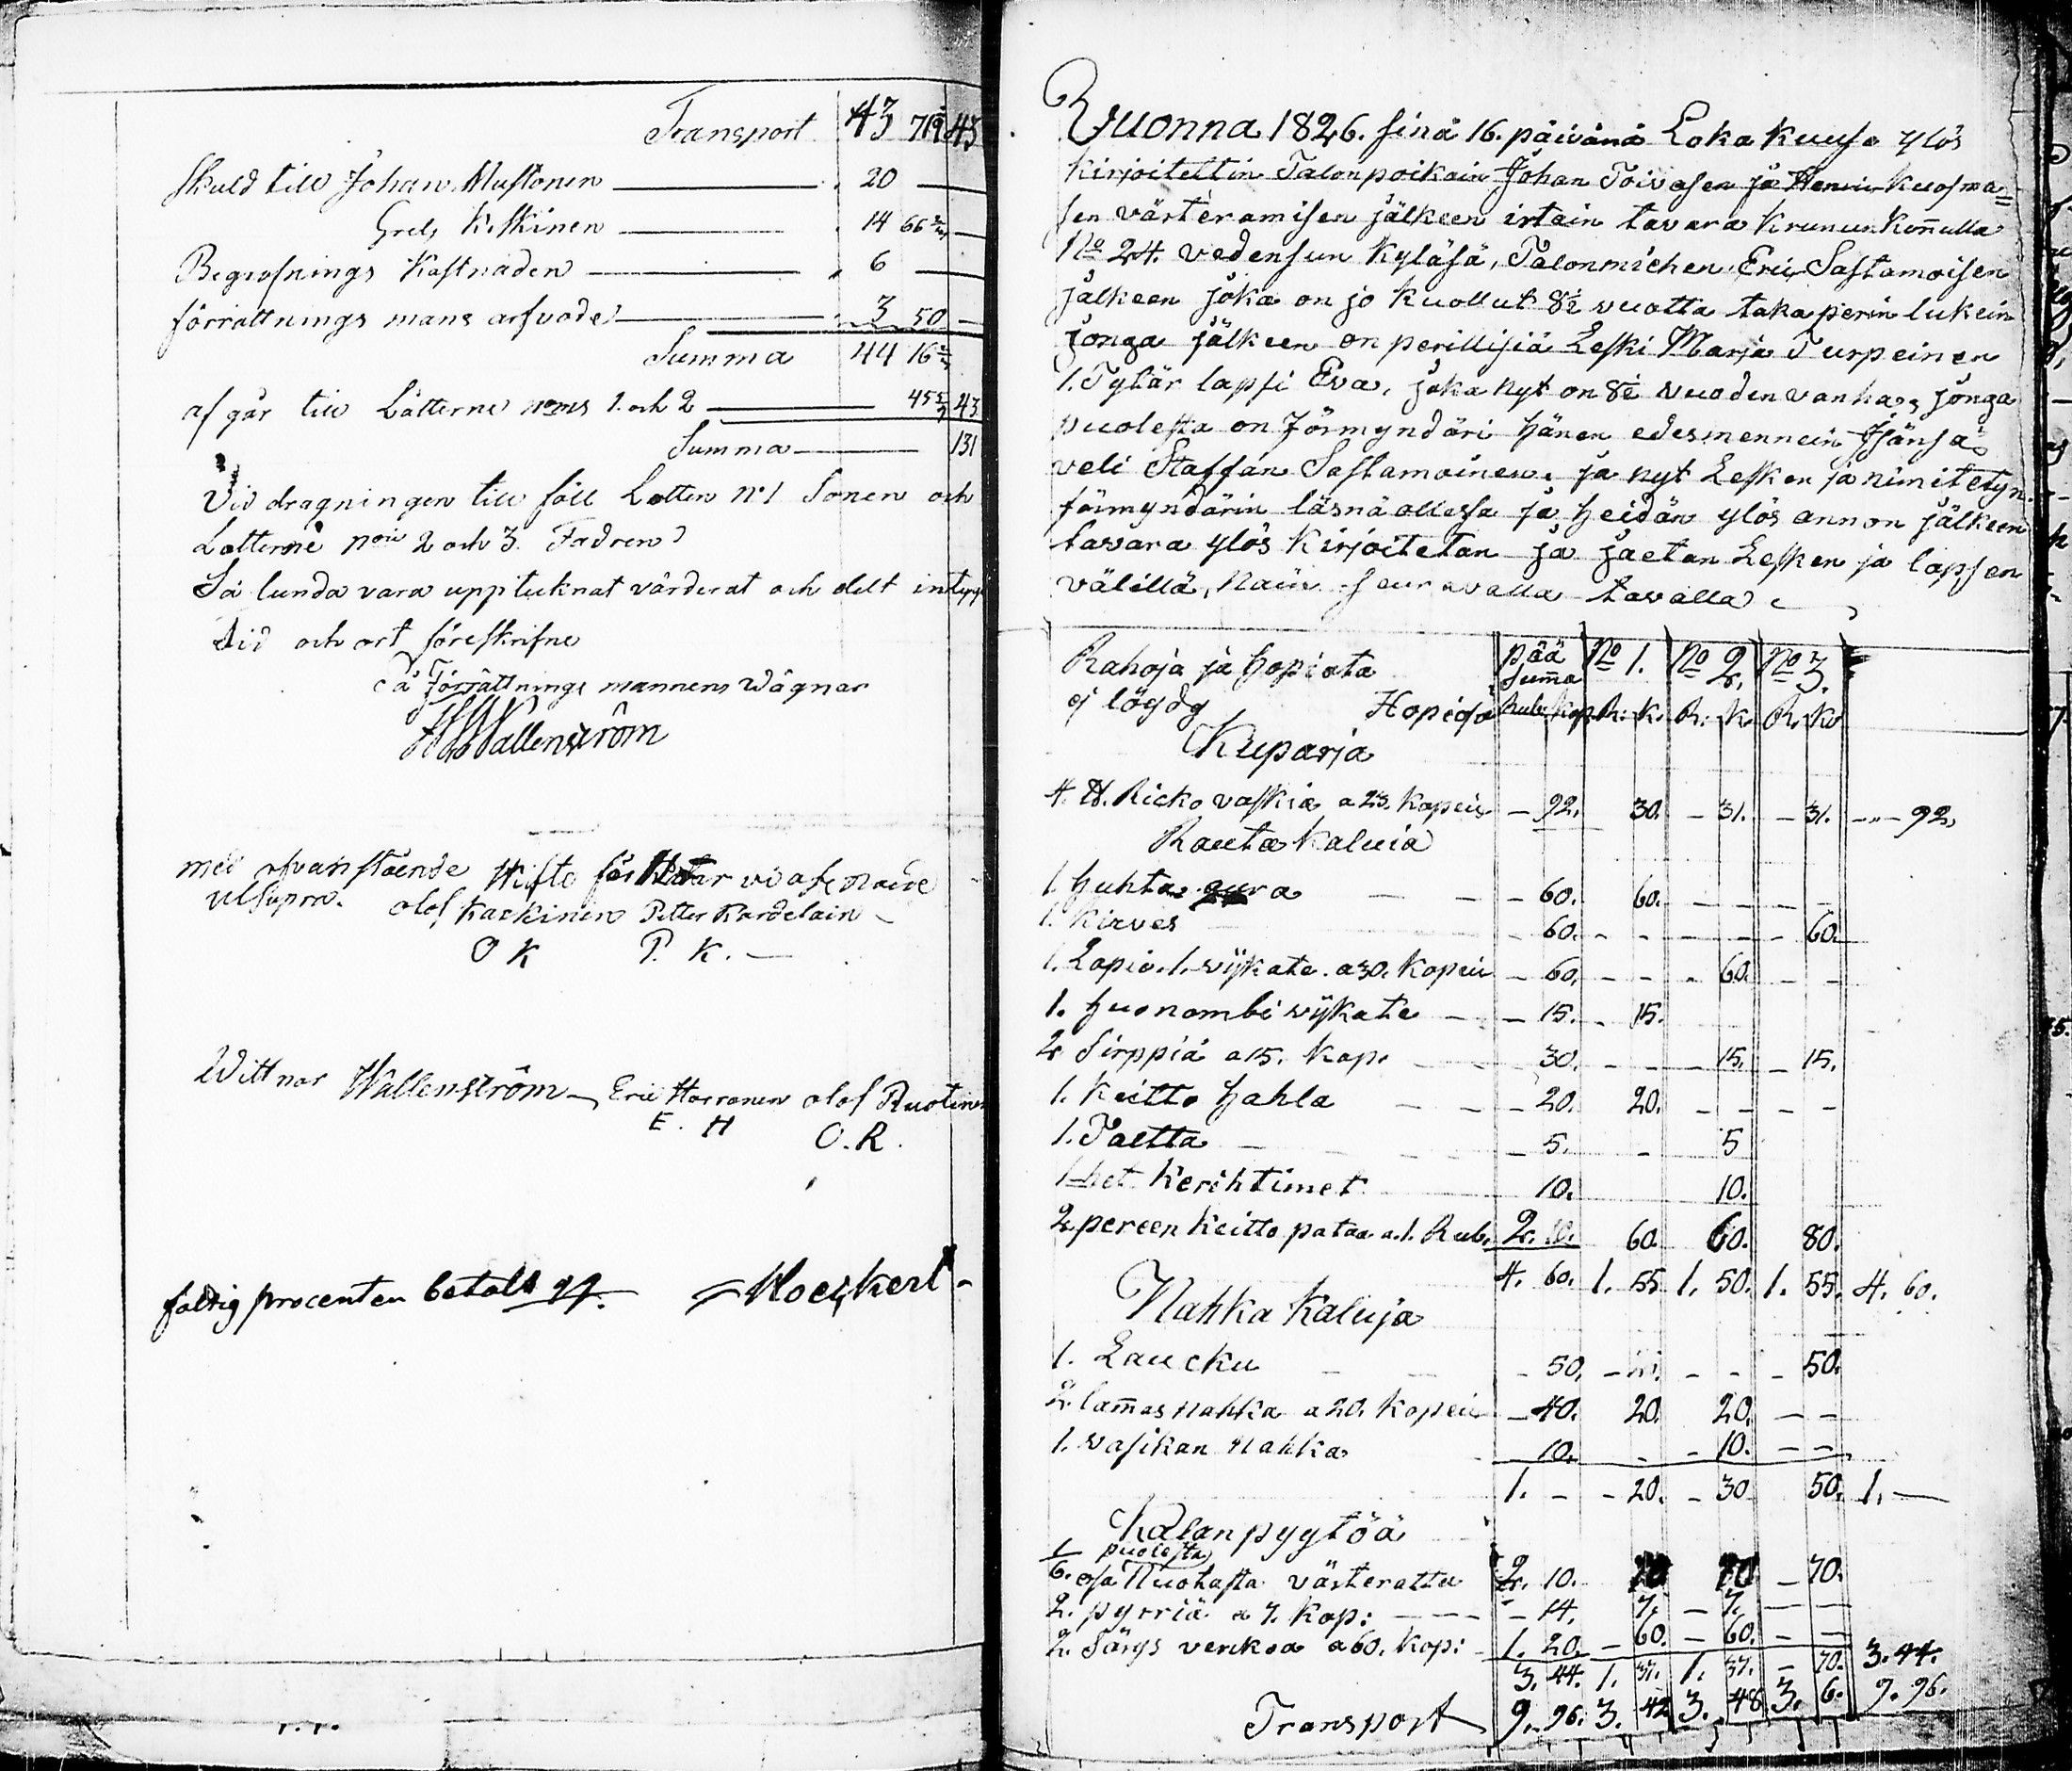 Transport 43 71 9/ 43
Skuld till Johan Mustonen — 20 —
Grels Kiskinen — 14 66 2/ —
Begrafnings Kostnaden — 6 —
förrättnings mans arfvode — 3 50 —
Summa 44 16 2/
af går till Lätterne noms 1. och 2 — 45 5/7 43
Summa — 131
Vid dragningen till föll Lotten No 1 Sonen och
Lotterne nris 2 och 3. Fadren
Så lunda vara upptecknat värderat och delt intyga
tid och ort föreskrifne
På Förrättnings mannens wägnar
Wallenström
med ofvanstående Skifte för vi
ut Supra. olof Karkinen Petter Kardelain
O K P. K. —
Wittnar Wallenström — Eric Horronen olof Ruotinen
E. H O. R.
fattig procenten betalt 24. Hoeckert
Vuonna 1826. sinä 16. päivänä Loka Kuusa ylös
Kirjoitettin Talonpoikain Johan Toivasen ja Henric Kuosma=
sen värteramisen jälkeen irtain tavara Krunun Kon̅ulla
No 24. Vedensun Kyläsä, Talonmiehen Eric Sastamoisen
jälkeen joka on jo Kuollut 8½ vuotta taka perin lukein
jonga jälkeen on perillisiä Leski Marja Turpeinen
1. Tytär lapsi Eva, joka nyt on 8½ vuoden vanha, jonga
puolesta on Förmyndäri hänen edesmennein Isänsä
veli Staffan Sastamoinen. ja nyt Lesken ja nimitetyn
förmyndärin läsnä ollessa ja heidän ylös annon jälkeen
tavara ylös Kirjoitetan ja jaetan Lesken ja lapsen
välillä, näin seuravalla tavalla
Rahoja ja hopiata pää sum̅a No 1. No 2. No 3.
ej löydy Hopiasa Rub: Kop R: K. R: K. R: Ko
Kuparia
4. ℔. Ricko vaskia a 23. Kopeik — 92. 30. — 31. — 31. — 92.
Rauta Kaluia
1. huhta — 60. 60. — — — —
1. Kirves — 60. — — — — 60.
1. Lapio. 1. wijkate. a 30. Kopeik — 60. — — — 60. — —
1. huonombi wijkate — — 15. — 15.
2. Sirppiä a 15. Kop. — 30. — — — 15. — 15.
1. Keitto hahla — — 20. 20. — — — —
1. Taltta — 5. — 5
1-het Kerihtimet 10. 10.
2. pereen Keitto pataa a. 1. Rub. 2. 60. 60. 80.
4. 60. 1. 55 1. 50. 1. 55. 4. 60.
Nahka Kaluja
1. Laucku — 50. — — — 50.
2. lam̅as nahka a 20. Kopeik — 40. 20. 20. — —
1. vasikan nahka 10. — — 10. — —
1. — — 20. — 30 50. 1. —
Kalan pyytöä
puolesta
1/6. osa Nuotasta värteratta 2. 10. 70 70 — 70.
2. pyrriä a 7. Kop: — — — 14. 7. — 7. — —
2. Särys verkoa a 60. Kop: 1. 20. — 60. — 60. — —
3. 44. 1. 37. 1. 37. — 70. 3. 44.
Transport 9. 96. 3. 42 3. 48 3. 6. 9. 96.